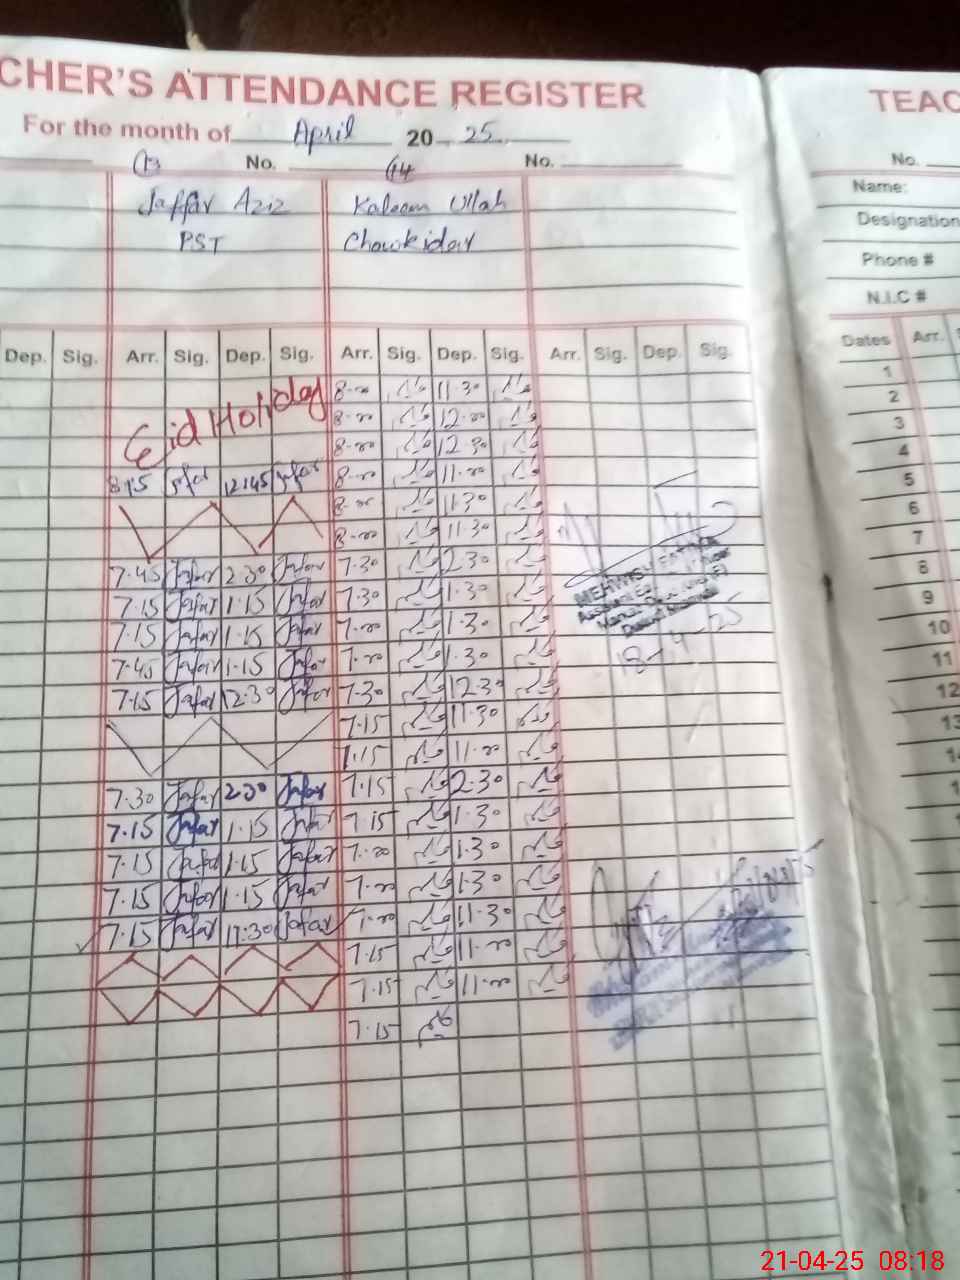 CHER'S ATTENDANCE REGISTER
For the month of April 2025
13 No. 14 No.
Jaffar Aziz Kaleem Ullah
PST Chowkidar
Dep. Sig. Arr. Sig. Dep. Sig. Arr. Sig. Dep. Sig. Arr. Sig. Dep. Sig.
Eid Holiday
8-00 11-30
8-00 12-00
8-00 12-30
8:15 Jafar 12:45 Jafar 8-00 11-00
8-00 11-30
8-00 11-30
7.45 Jafar 2.30 Jafar 7.30 2.30
7.15 Jafar 1.15 Jafar 7.30 1.30
7.15 Jafar 1.15 Jafar 7.00 1.30
7.45 Jafar 1.15 Jafar 7.00 1.30
7.15 Jafar 12.30 Jafar 7.30 12.30
7.15 11.30
7.15 11.00
7.30 Jafar 2.30 Jafar 7.15 2.30
7.15 Jafar 1.15 Jafar 7.15 1.30
7.15 Jafar 1.15 Jafar 7.00 1.30
7.15 Jafar 1.15 Jafar 7.00 1.30
7.15 Jafar 11:30 Jafar 7.00 11.30
7.15 11.00
7.15 11.00
7.15
MEHWISH FATIMA
18-4-25
TEAC
No.
Name:
Designation
Phone #
N.I.C #
Dates Arr.
1
2
3
4
5
6
7
8
9
10
11
12
13
21-04-25 08:18